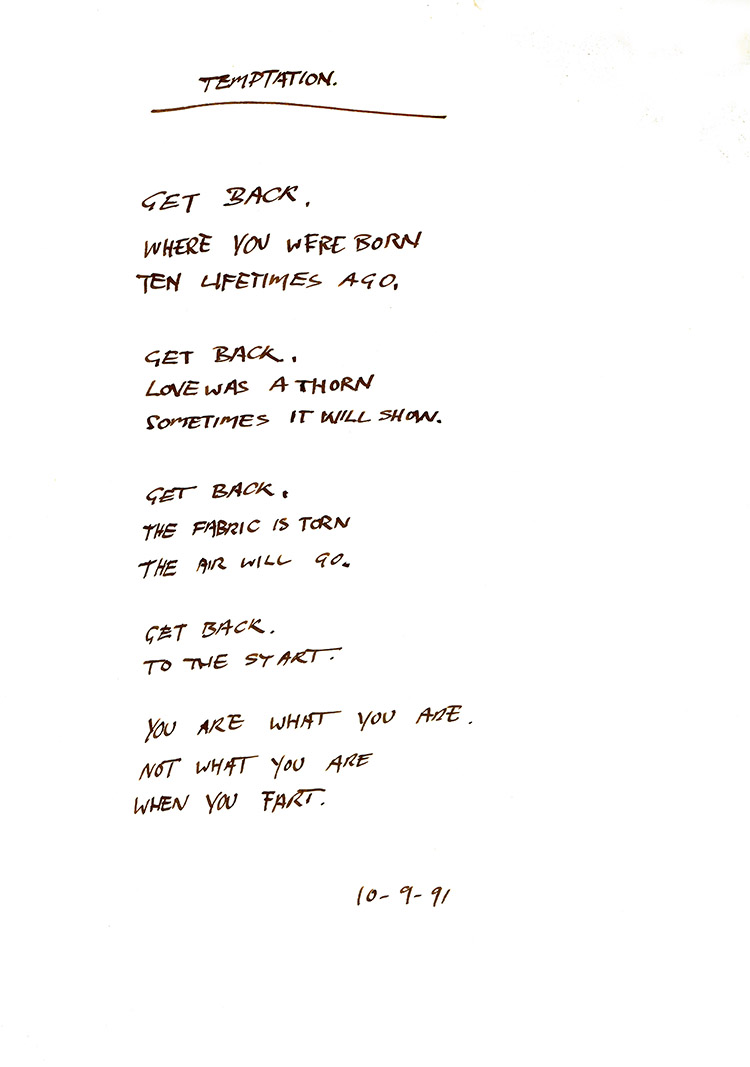 TEMPTATION.
GET BACK.
WHERE YOU WERE BORN
TEN LIFETIMES AGO.
GET BACK.
LOVE WAS A THORN
SOMETIMES IT WILL SHOW.
GET BACK.
THE FABRIC IS TORN
THE AIR WILL GO.
GET BACK.
TO THE START.
YOU ARE WHAT YOU ARE.
NOT WHAT YOU ARE
WHEN YOU FART.
10-9-91